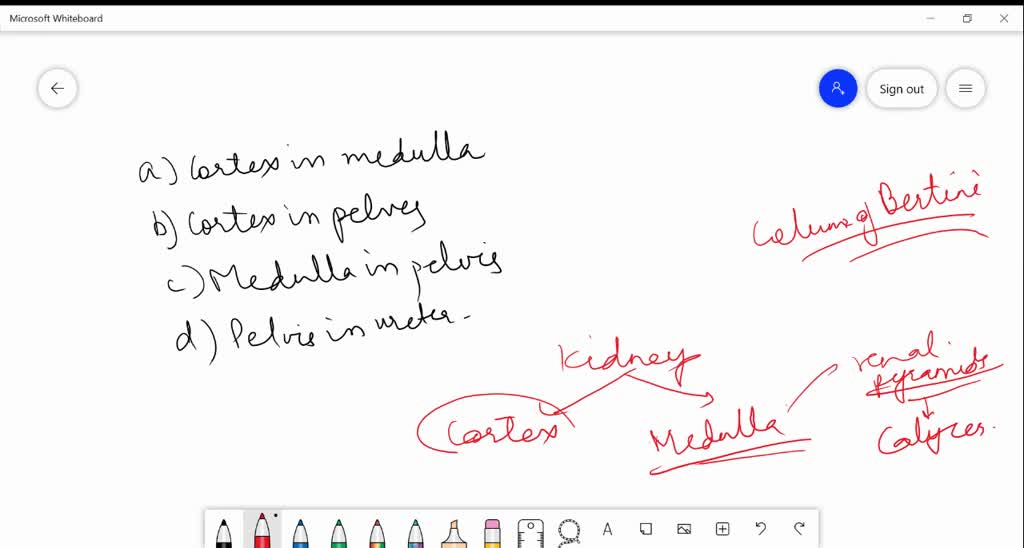 Microsoft Whiteboard
Sign out
a) Cortex in medulla
b) Cortex in pelves
c) Medulla in pelvis
d) Pelvis in ureter.
Column of Bertini
Kidney
Cortex
Medulla
renal
pyramids
Calyces.
A